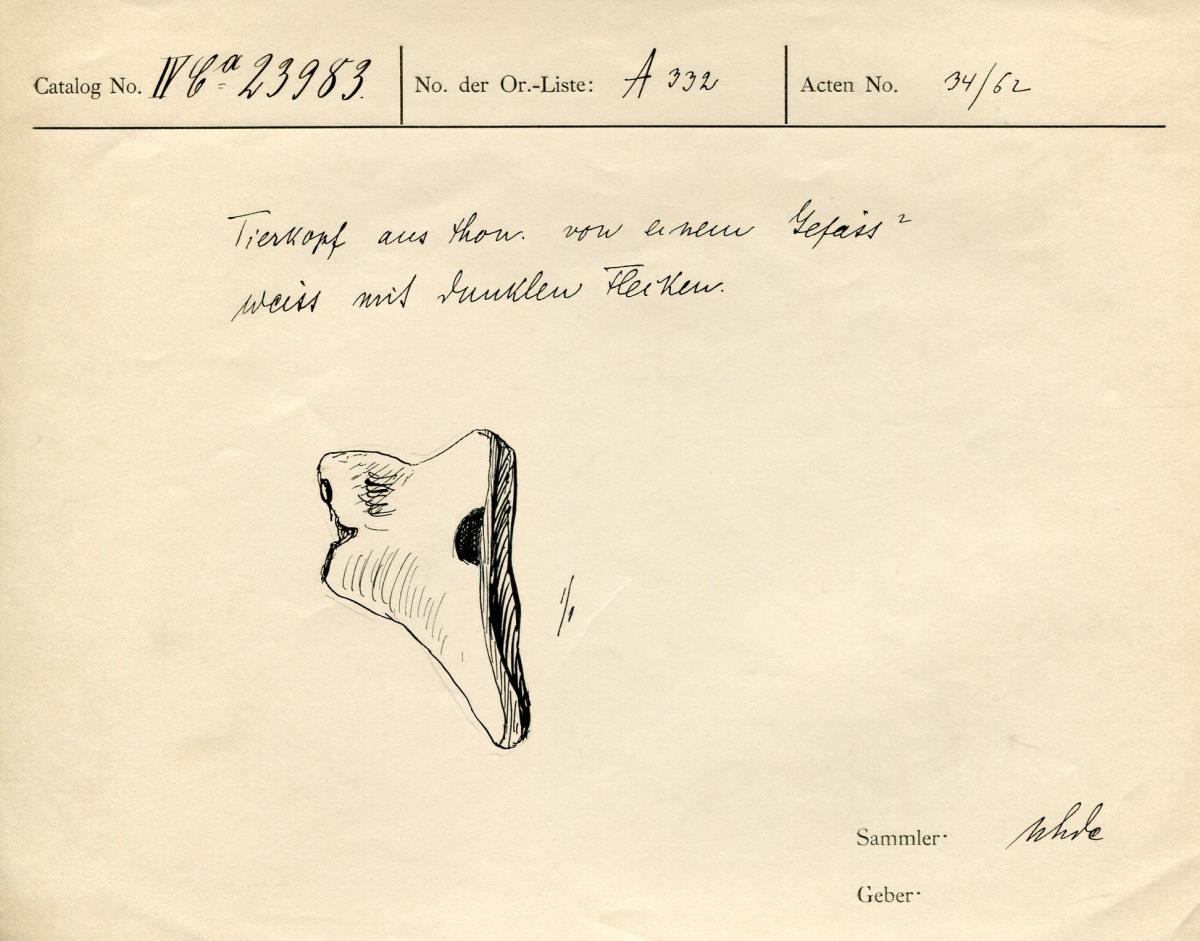 Catalog No. IV Ca 23983. No. der Or.-Liste: A 332 Acten No. 34/62
Tierkopf aus Thon. von einem Gefäss?
weiss mit dunklen Flecken.
1/1
Sammler: Uhde
Geber: